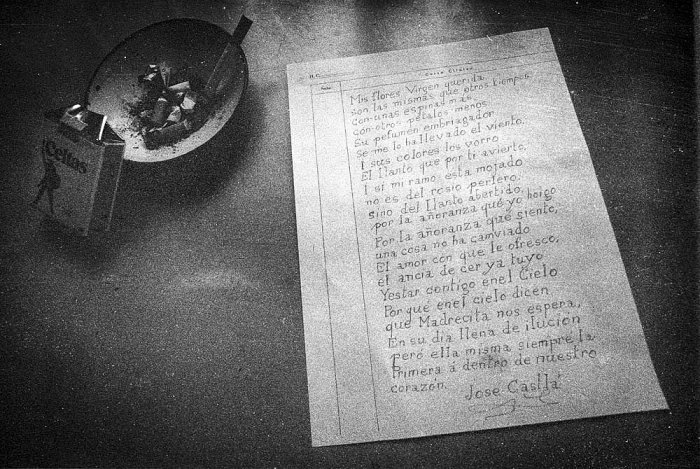 Celtas
H.C.
Curso Clínico
Fecha
Mis flores Virgen querida
son las mismas que otros tiempos
con unas espinas mas
con otros petalos menos
Su pefumen embriagador
se me lo ha llevado el viento.
I sus colores los vorro
El llanto que por ti avierto,
I si mi ramo esta mojado
no es del rosio perfero.
sino del llanto abertido,
por la añoranza que yo hoigo
Por la añoranza que siente,
una cosa no ha camviado
El amor con que le ofresco,
el ancia de cer ya tuyo
Yestar contigo enel Cielo
Por qué enel cielo dicen
que Madrecita nos espera,
En su dia llena de ilucion
però ella misma siempre la
Primera á dentro de nuestro
corazón.
Jose Caslla